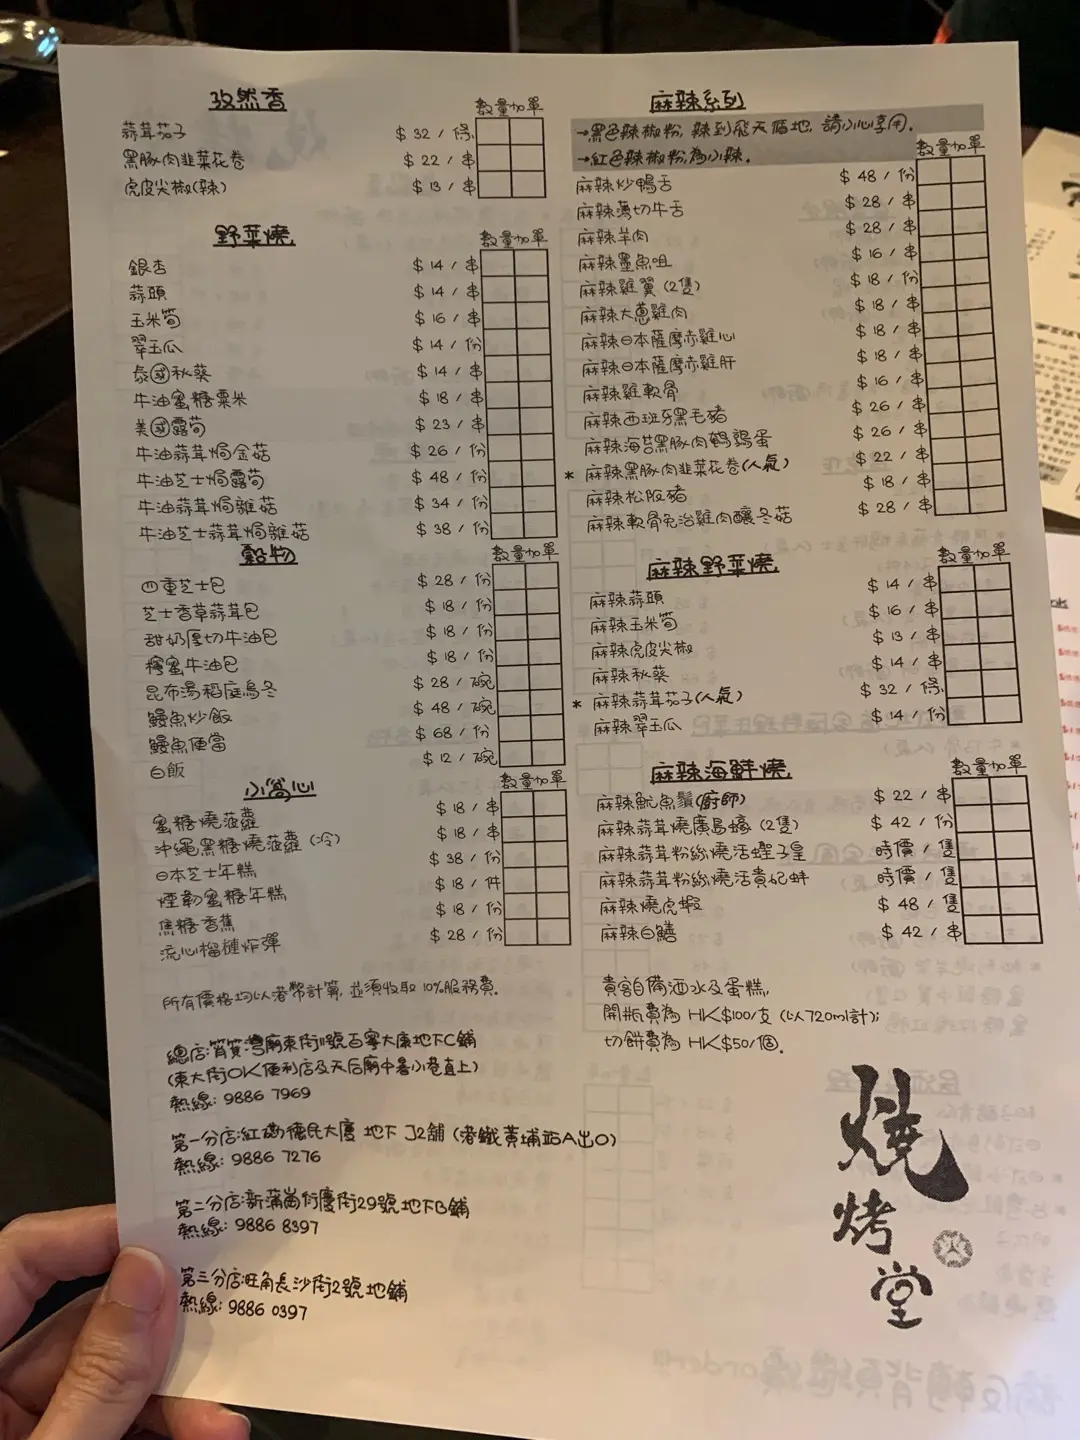 孜然香
數量 加單
蒜茸茄子 $32 / 條
黑豚肉韭菜花卷 $22 / 串
虎皮尖椒(辣) $13 / 串
野菜燒
數量 加單
銀杏 $14 / 串
蒜頭 $14 / 串
玉米筍 $16 / 串
翠玉瓜 $14 / 份
泰國秋葵 $14 / 串
牛油蜜糖粟米 $18 / 串
美國露筍 $23 / 串
牛油蒜茸焗金菇 $26 / 份
牛油芝士焗露筍 $48 / 份
牛油蒜茸焗雜菇 $34 / 份
牛油芝士蒜茸焗雜菇 $38 / 份
穀物
數量 加單
四重芝士包 $28 / 份
芝士香草蒜茸包 $18 / 份
甜奶厚切牛油包 $18 / 份
檸蜜牛油包 $18 / 份
昆布湯稻庭烏冬 $28 / 碗
鰻魚炒飯 $48 / 碗
鰻魚便當 $68 / 份
白飯 $12 / 碗
小窩心
數量 加單
蜜糖燒菠蘿 $18 / 串
沖繩黑糖燒菠蘿(冷) $18 / 串
日本芝士年糕 $38 / 份
煙勒蜜糖年糕 $18 / 件
焦糖香蕉 $18 / 份
流心榴槤炸彈 $28 / 份
所有價格均以港幣計算, 並須收取 10%服務費.
總店:筲箕灣廟東街11號百寧大廈地下C舖
(東大街OK便利店及天后廟中暑小巷直上)
熱線: 9886 7969
第一分店:紅磡德民大廈 地下 J2舖 (港鐵黃埔站A出口)
熱線: 9886 7276
第二分店:新蒲崗衍慶街29號地下B舖
熱線: 9886 8397
第三分店:旺角長沙街2號地舖
熱線: 9886 0397
麻辣系列
→黑色辣椒粉, 辣到飛天遁地, 請小心享用.
→紅色辣椒粉為小辣.
數量 加單
麻辣炒鴨舌 $48 / 份
麻辣薄切牛舌 $28 / 串
麻辣羊肉 $28 / 串
麻辣墨魚咀 $16 / 串
麻辣雞翼(2隻) $18 / 份
麻辣大蔥雞肉 $18 / 串
麻辣日本薩摩赤雞心 $18 / 串
麻辣日本薩摩赤雞肝 $18 / 串
麻辣雞軟骨 $16 / 串
麻辣西班牙黑毛豬 $26 / 串
麻辣海苔黑豚肉鵪鶉蛋 $26 / 串
* 麻辣黑豚肉韭菜花卷(人氣) $22 / 串
麻辣松阪豬 $18 / 串
麻辣軟骨免治雞肉釀冬菇 $28 / 串
麻辣野菜燒
數量 加單
麻辣蒜頭 $14 / 串
麻辣玉米筍 $16 / 串
麻辣虎皮尖椒 $13 / 串
麻辣秋葵 $14 / 串
* 麻辣蒜茸茄子(人氣) $32 / 條
麻辣翠玉瓜 $14 / 份
麻辣海鮮燒
數量 加單
麻辣魷魚鬚(廚師) $22 / 串
麻辣蒜茸燒廣島蠔(2隻) $42 / 份
麻辣蒜茸粉絲燒活蟶子皇 時價 / 隻
麻辣蒜茸粉絲燒活貴妃蚌 時價 / 隻
麻辣燒虎蝦 $48 / 隻
麻辣白鱔 $42 / 串
貴客自備酒水及蛋糕,
開瓶費為 HK$100/支 (以720ml計);
切餅費為 HK$50/個.
燒烤堂